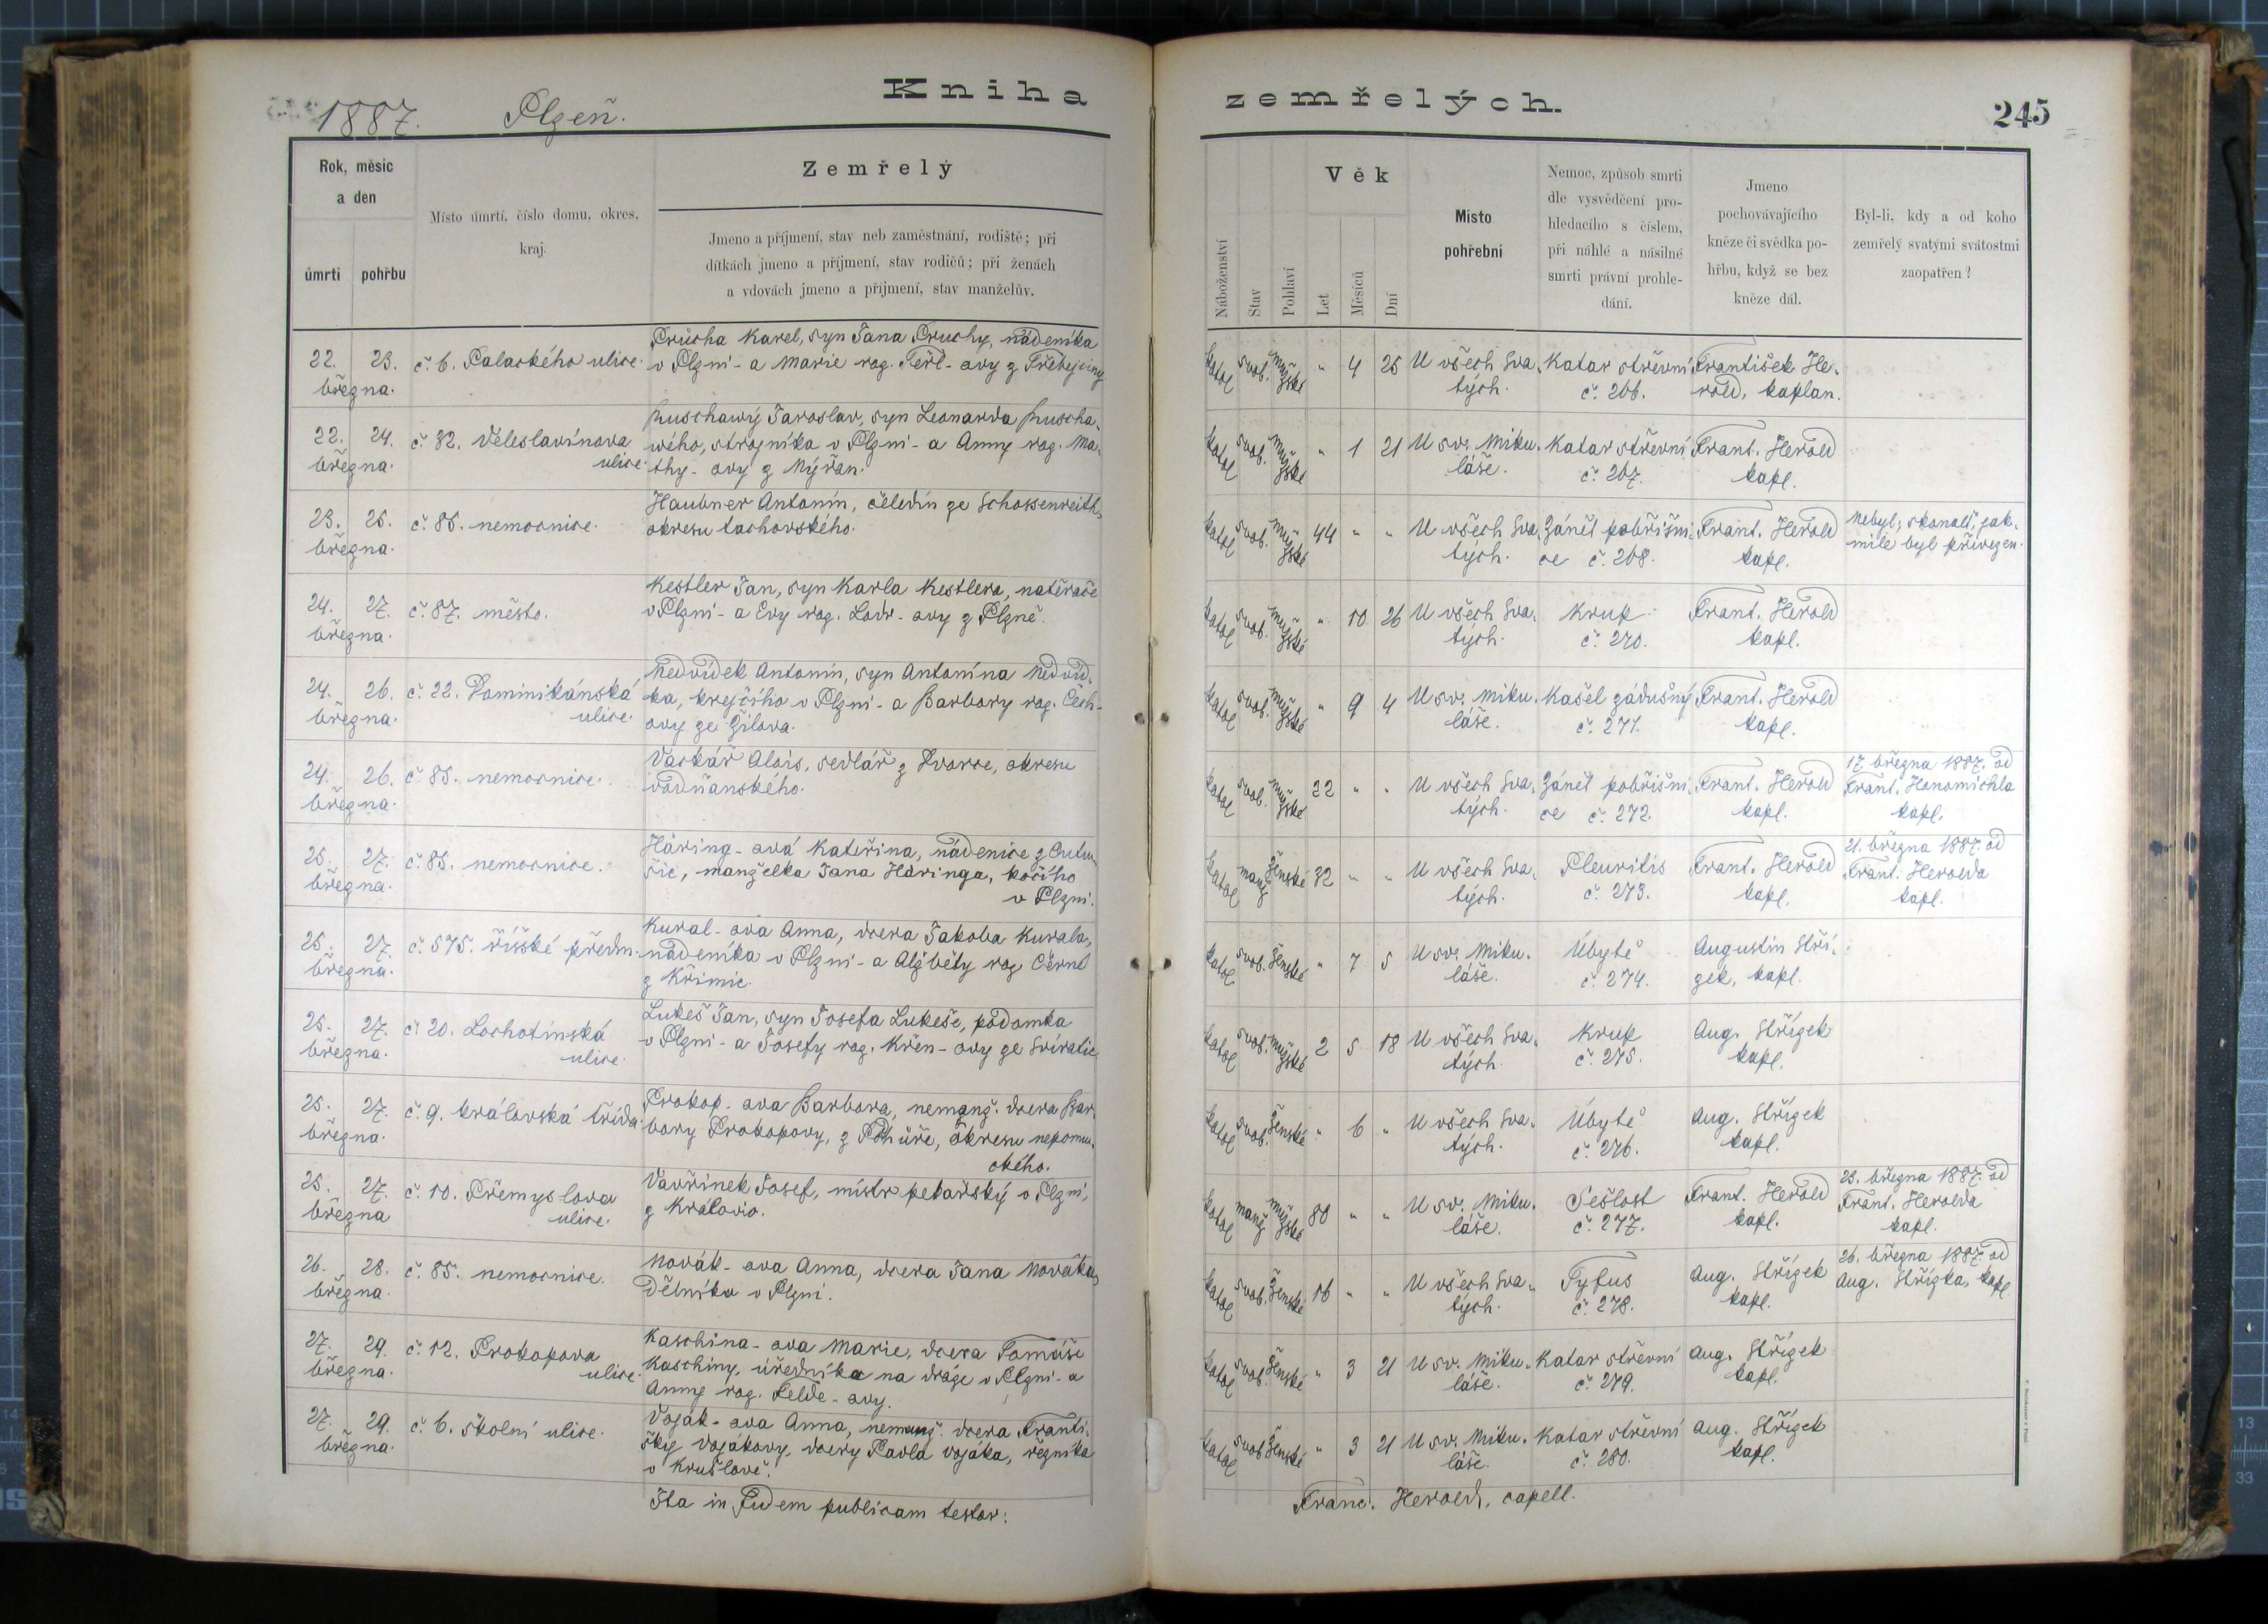 Kniha
zemřelých.
245
1887. Plzeň.
Rok, měsíc
a den
úmrtí
pohřbu
Místo úmrtí, číslo domu, okres.
kraj.
Zemřelý
Jmeno a příjmení, stav neb zaměstnání, rodiště; při
dítkách jmeno a příjmení, stav rodičů; při ženách
a vdovách jmeno a příjmení, stav manželův.
Náboženství
Stav
Pohlaví
Věk
Let
Měsíců
Dní
Místo
pohřební
Nemoc, způsob smrti
dle vysvědčení pro-
hledacího s číslem,
při náhlé a násilné
smrti právní prohle-
dání.
Jmeno
pochovávajícího
kněze či svědka po-
hřbu, když se bez
kněze dál.
Byl-li, kdy a od koho
zemřelý svatými svátostmi
zaopatřen?
22. 23.
března.
č. 6. Palackého ulice.
Průcha Karel, syn Jana Průchy, nádeníka
v Plzni - a Marie roz. Terl - ovy z
katol svob. mužské " 4 25
U všech Sva-
tých.
Katar střevní
č. 266.
František He-
rold, kaplan.
22. 24.
března.
č. 32. Veleslavínova
ulice.
Puschawý Jaroslav, syn Leonarda Puscha-
wého, strojníka v Plzni - a Anny roz. Ma-
thy - ovy z Nýřan.
katol svob. mužské " 1 21
U sv. Miku-
láše.
Katar střevní
č. 267.
Frant. Herold
kapl.
23. 25.
března.
č. 85. nemocnice.
Haubner Antonín, čeledín ze Schossenreith,
okresu tachovského.
katol svob. mužské 44 " "
U všech Sva-
tých.
Zánět pobřišni-
ce č. 268.
Frant. Herold
kapl.
Nebyl; skonalť, jak-
mile byl přivezen.
24. 27.
března.
č. 87. město.
Kestler Jan, syn Karla Kestlera, natěrače
v Plzni - a Evy roz. Lodr - ovy z Plzně.
katol svob. mužské " 10 26
U všech Sva-
tých.
Krup
č. 270.
Frant. Herold
kapl.
24. 26.
března.
č. 22. Dominikánská
ulice.
Nedvídek Antonín, syn Antonína Nedvíd-
ka, krejčího v Plzni - a Barbory roz. Čech -
ovy ze Žilova.
katol svob. mužské " 9 4
U sv. Miku-
láše.
Kašel zádušný
č. 271.
Frant. Herold
kapl.
24. 26.
března.
č. 85. nemocnice.
Vackář Alois, sedlář z Dvorce, okresu
vodňanského.
katol svob. mužské 22 " "
U všech Sva-
tých.
Zánět pobřišni-
ce č. 272.
Frant. Herold
kapl.
17. března 1887. od
Frant. Hanomichla
kapl.
25. 27.
března.
č. 85. nemocnice.
Häring - ová Kateřina, nádenice z Litu-
šic, manželka Jana Häringa, kočího
v Plzni.
katol manž ženské 32 " "
U všech Sva-
tých.
Pleuritis
č. 273.
Frant. Herold
kapl.
21. března 1887. od
Frant. Herolda
kapl.
25. 27.
března.
č. 575. říšské předm.
Kural - ova Anna, dcera Jakoba Kurala,
nádeníka v Plzni - a Alžběty roz. Černé
z Křimic.
katol svob. ženské " 7 5
U sv. Miku-
láše.
Úbytě
č. 274.
Augustin Stří-
zek, kapl.
25. 27.
března.
č. 20. Lochotínská
ulice.
Lukeš Jan, syn Josefa Lukeše, podomka
v Plzni - a Josefy roz. Křen - ovy ze Svíratic.
katol svob. mužské 2 5 18
U všech Sva-
tých.
Krup
č. 275.
Aug. Střízek
kapl.
25. 27.
března.
č. 9. královská třída.
Prokop - ova Barbora, nemanž. dcera Bar-
bory Prokopovy, z Pohůře, okresu nepomu-
ckého.
katol svob. ženské " 6 "
U všech Sva-
tých.
Úbytě
č. 276.
Aug. Střízek
kapl.
25. 27.
března
č. 10. Přemyslova
ulice.
Vavřinek Josef, místr pekařský v Plzni,
z Kralovic.
katol manž mužské 80 " "
U sv. Miku-
láše.
Sešlost
č. 277.
Frant. Herold
kapl.
23. března 1887. od
Frant. Herolda
kapl.
26. 28.
března.
č. 85. nemocnice.
Novák - ova Anna, dcera Jana Nováka,
dělníka v Plzni.
katol svob. ženské 16 " "
U všech Sva-
tých.
Tyfus
č. 278.
Aug. Střízek
kapl.
26. března 1887. od
Aug. Střízka, kapl.
27. 29.
března.
č. 12. Prokopova
ulice.
Kaschina - ova Marie, dcera Tomáše
Kaschiny, úředníka na dráze v Plzni - a
Anny roz. Felde - ovy.
katol svob. ženské " 3 21
U sv. Miku-
láše.
Katar střevní
č. 279.
Aug. Střízek
kapl.
27. 29.
března.
č. 6. školní ulice.
Voják - ova Anna, nemanž. dcera Franti-
šky Vojákovy, dcery Pavla Vojáka, řezníka
v Krušlově.
katol svob ženské " 3 21
U sv. Miku-
láše.
Katar střevní
č. 280.
Aug. Střízek
kapl.
Ita in fidem publicam testor:
Franc. Herold, capell.